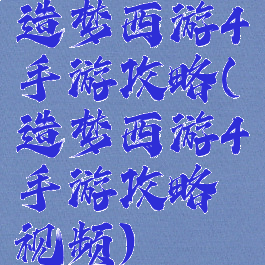 造梦西游4
手游攻略(
造梦西游4
手游攻略
视频)